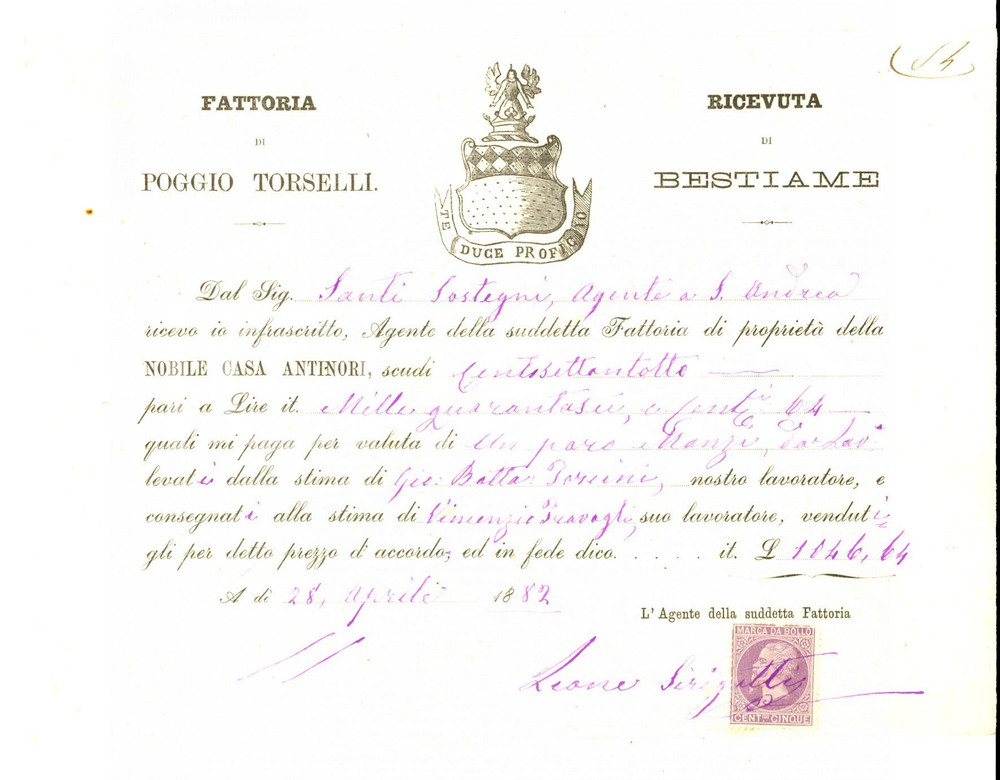 54
FATTORIA
DI
POGGIO TORSELLI.
RICEVUTA
DI
BESTIAME
TE DUCE PROFICIO
Dal Sig. Santi Sostegni, Agente a S. Andrea
ricevo io infrascritto, Agente della suddetta Fattoria di proprietà della
NOBILE CASA ANTINORI, scudi Centosettantotto
pari a Lire it. Mille quarantasei, e Cent.i 64
quali mi paga per valuta di un paro Manzi, da
levati dalla stima di Gio: Batta: nostro lavoratore, e
consegnati alla stima di Vincenzio Travagli, suo lavoratore, venduti
gli per detto prezzo d'accordo, ed in fede dico. . . . . . it. £ 1046,64
A dì 28, Aprile 1882
L' Agente della suddetta Fattoria
Leone
MARCA DA BOLLO
CENT.MI CINQUE